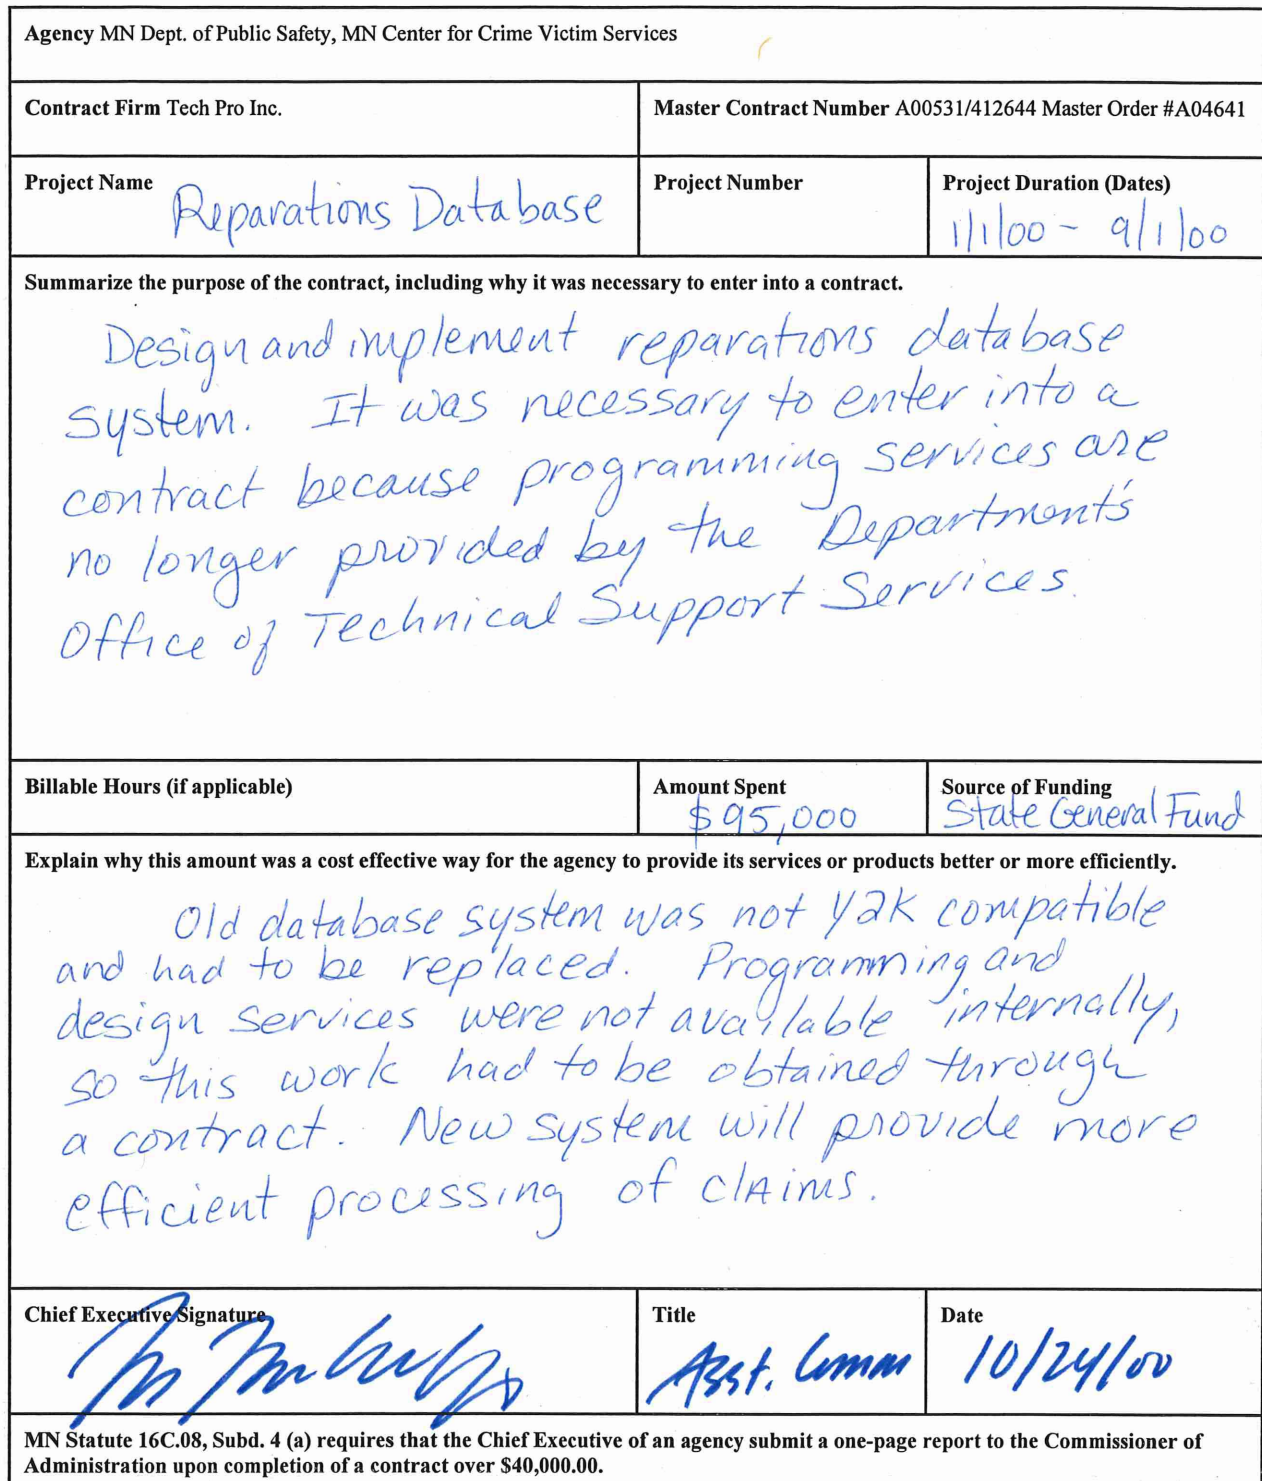 Agency MN Dept. of Public Safety, MN Center for Crime Victim Services
Contract Firm Tech Pro Inc.
Master Contract Number A00531/412644 Master Order #A04641
Project Name
Reparations Database
Project Number
Project Duration (Dates)
1/1/00 - 9/1/00
Summarize the purpose of the contract, including why it was necessary to enter into a contract.
Design and implement reparations database
system. It was necessary to enter into a
contract because programming services are
no longer provided by the Department's
Office of Technical Support Services.
Billable Hours (if applicable)
Amount Spent
$95,000
Source of Funding
State General Fund
Explain why this amount was a cost effective way for the agency to provide its services or products better or more efficiently.
Old database system was not Y2K compatible
and had to be replaced. Programming and
design services were not available internally,
so this work had to be obtained through
a contract. New system will provide more
efficient processing of claims.
Chief Executive Signature
Title
Asst. Comm
Date
10/24/00
MN Statute 16C.08, Subd. 4 (a) requires that the Chief Executive of an agency submit a one-page report to the Commissioner of
Administration upon completion of a contract over $40,000.00.